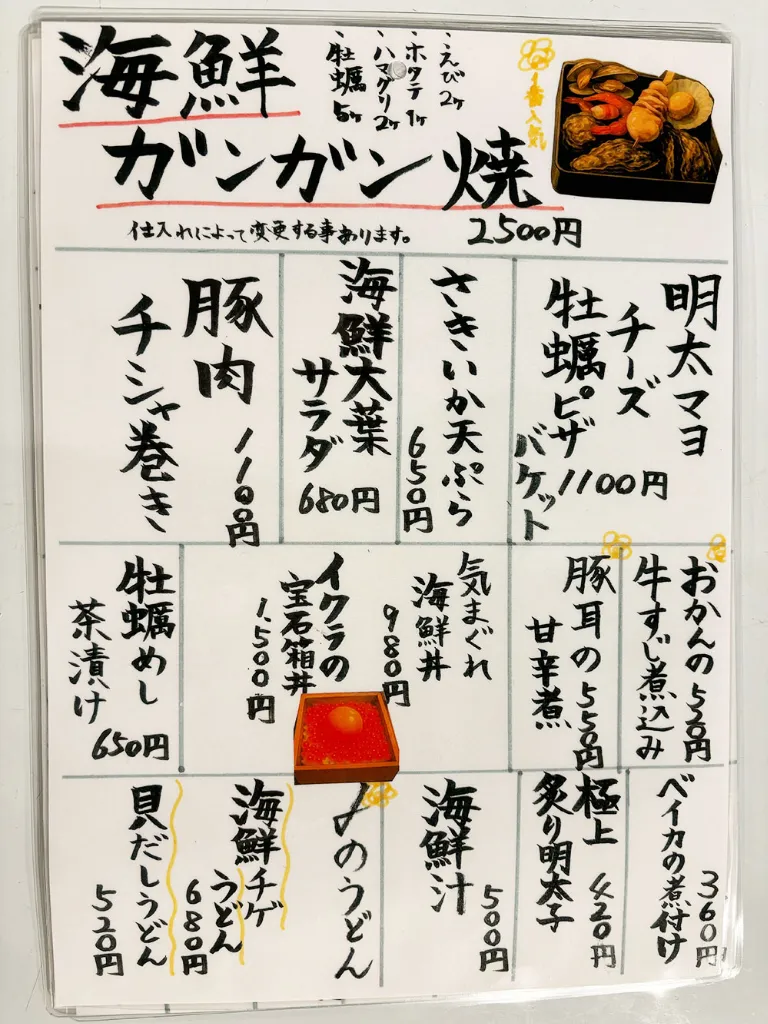 海鮮
ガンガン焼
・えび2ヶ
・ホタテ1ヶ
・ハマグリ2ヶ
・牡蠣5ヶ
1番人気
仕入れによって変更する事あります。
2500円
明太マヨ
チーズ
牡蠣ピザ
バケット
1100円
さきいか天ぷら
650円
海鮮大葉
サラダ
680円
豚肉
チシャ巻き
1100円
おかんの
牛すじ煮込み
550円
豚耳の
甘辛煮
550円
気まぐれ
海鮮丼
980円
イクラの
宝石箱丼
1,500円
牡蠣めし
茶漬け
650円
ベイカの煮付け
360円
極上
炙り明太子
420円
海鮮汁
500円
〆のうどん
海鮮チゲ
うどん
680円
貝だしうどん
520円